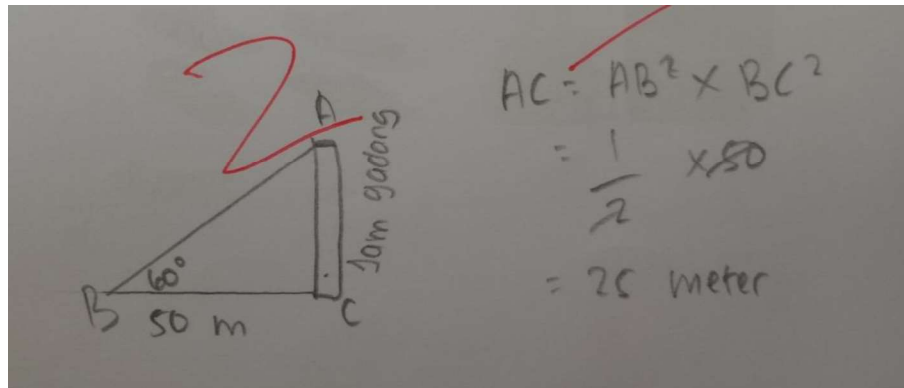 2
A
Jam gadang
60°
B
C
50 m
AC = AB² × BC²
= 1/2 × 50
= 25 meter